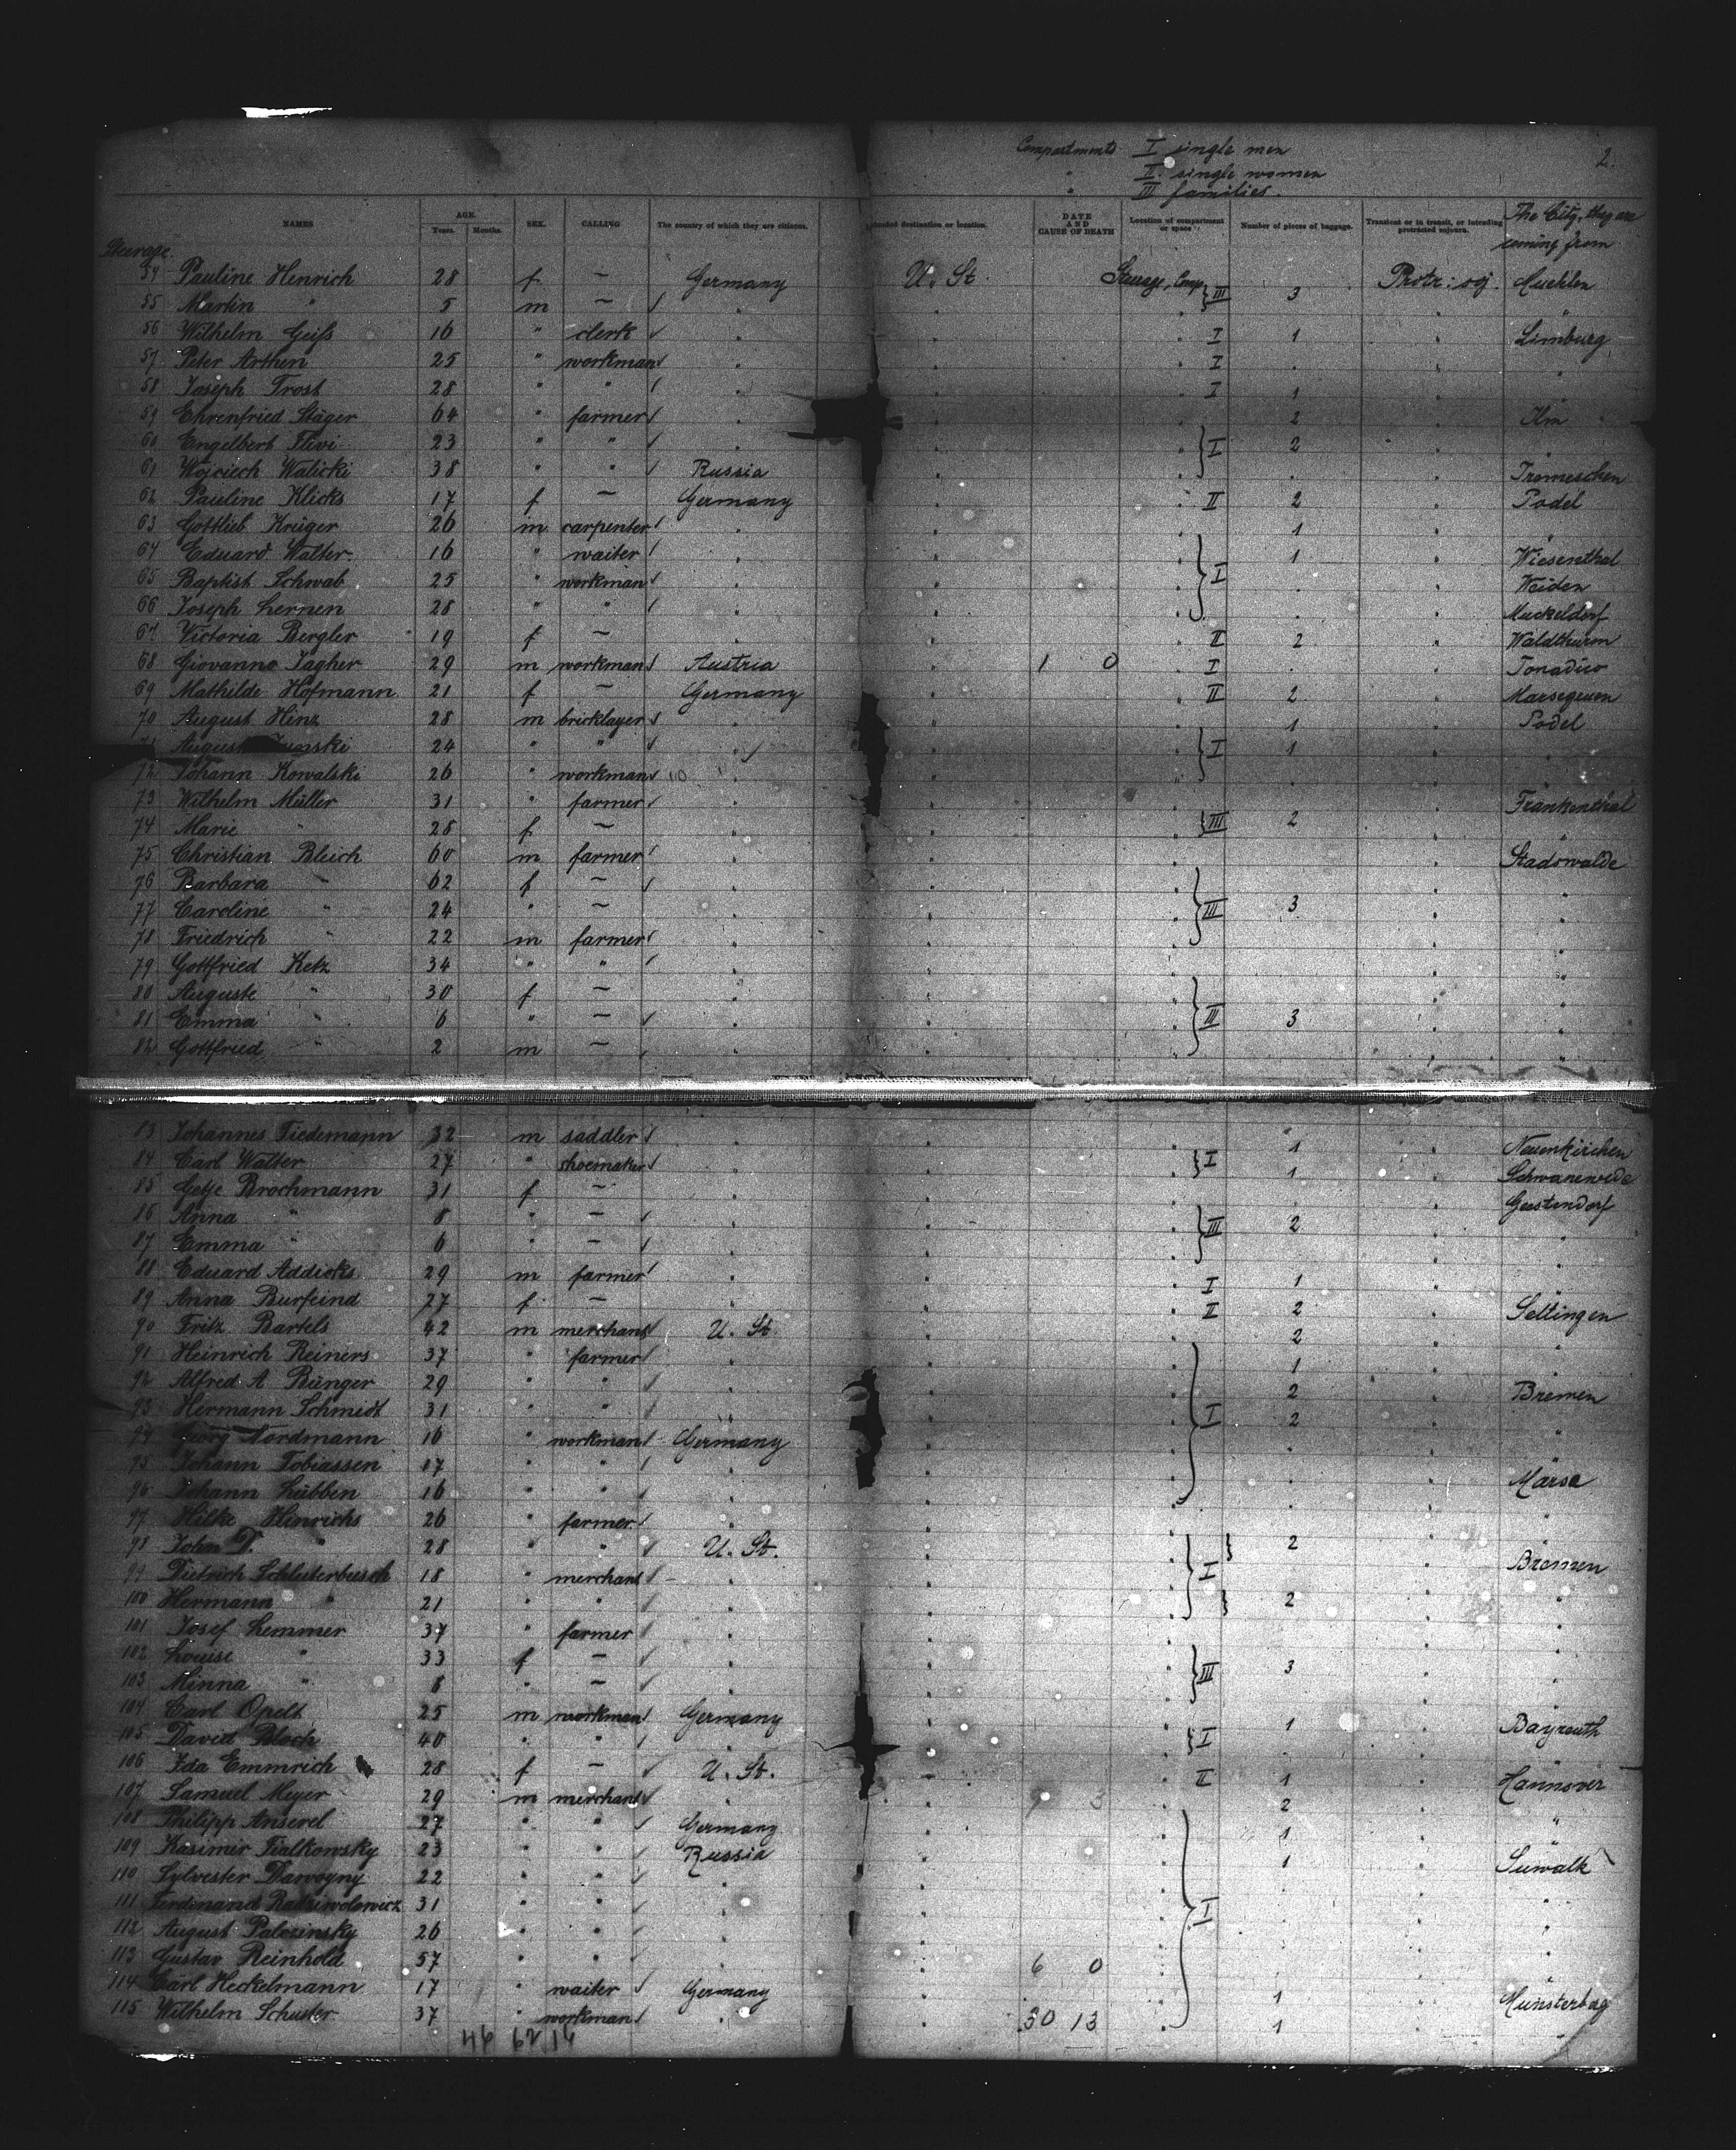 Compartments I single men
" II. single women
" III families.
2.
NAMES AGE. Years. Months. SEX. CALLING The country of which they are citizens. Intended destination or location. DATE AND CAUSE OF DEATH Location of compartment or space Number of pieces of baggage. Transient or in transit, or intending protracted sojourn. The City, they are coming from
Steerage.
54 Pauline Henrich 28 f — Germany U. St. Steerage, Comp. III 3 Protr: soj. Muehlen
55 Martin " 5 m — " " " " "
56 Wilhelm Geiß 16 " clerk " " " I 1 " Limburg
57 Peter Arthen 25 " workman " " " I . " "
58 Joseph Trost 28 " " " " " I 1 " "
59 Ehrenfried Stäger 64 " farmer " " " 2 " Ilm
60 Engelbert Flivi 23 " " " " " I 2 " "
61 Wojciech Walicki 38 " " Russia " " . " Tromeschen
62 Pauline Klicks 17 f — Germany " " II 2 " Podel
63 Gottlieb Krüger 26 m carpenter " " " 1 " "
64 Eduard Walter 16 " waiter " " " I 1 " Wiesenthal
65 Baptist Schwab 25 " workman " " " . " Weiden
66 Joseph Lernen 28 " " " " " . " Muckeldorf
67 Victoria Bergler 19 f — " " " II 2 " Waldthurm
68 Giovanno Jagher 29 m workman Austria " 1 0 " I . " Tonadico
69 Mathilde Hofmann 21 f — Germany " " II 2 " Marsegruen
70 August Hinz 28 m bricklayer " " " 1 " Podel
71 August 24 " " " " " I 1 " "
72 Johann Kowalski 26 " workman " " " . " "
73 Wilhelm Müller 31 " farmer " " " " Frankenthal
74 Marie " 28 f — " " " III 2 " "
75 Christian Bleich 60 m farmer " " " " Stadswalde
76 Barbara " 62 f — " " " " "
77 Caroline " 24 " — " " " III 3 " "
78 Friedrich " 22 m farmer " " " " "
79 Gottfried Ketz 34 " " " " " " "
80 Auguste " 30 f — " " " " "
81 Emma " 6 " — " " " III 3 " "
82 Gottfried " 2 m — " " " " "
83 Johannes Tiedemann 32 m saddler " " " 1 " Neuenkirchen
84 Carl Walter 27 " shoemaker " " " I 1 " Schwanewede
85 Getje Brochmann 31 f — " " " " Geestendorf
86 Anna " 8 " — " " " III 2 " "
87 Emma " 6 " — " " " " "
88 Eduard Addicks 29 m farmer " " " I 1 " "
89 Anna Burfeind 27 f — " " " II 2 " Seltingen
90 Fritz Bartels 42 m merchant U. St. " " 2 " "
91 Heinrich Reiners 37 " farmer " " " 1 " "
92 Alfred A Bünger 29 " " " " " 2 " Bremen
93 Hermann Schmidt 31 " " " " " I 2 " "
94 Georg Nordmann 16 " workman Germany " " . " "
95 Johann Tobiassen 17 " " " " " . " Marsa
96 Johann Lübben 16 " " " " " . " "
97 Hilke Hinrichs 26 " farmer " " " " "
98 John D. " 28 " " U. St. " " 2 " Bremen
99 Dietrich Schluterbusch 18 " merchant " " " I " "
100 Hermann " 21 " " " " " 2 " "
101 Josef Lemmer 37 " farmer " " " " "
102 Louise " 33 f — " " " III 3 " "
103 Minna " 8 " — " " " " "
104 Carl Opelt 25 m workman Germany " " 1 " Bayreuth
105 David Bloch 40 " " " " " I . " "
106 Ida Emmrich 28 f — U. St. " " II 1 " Hannover
107 Samuel Meyer 29 m merchant " " 3 " 2 " "
108 Philipp Anserel 27 " " Germany " " 1 " "
109 Kasimir Fialkowsky 23 " " Russia " " 1 " Suwalk
110 Sylvester Darvoyny 22 " " " " " . " "
111 Ferdinand Radziwolowicz 31 " " " " " I . " "
112 August Palozinsky 26 " " " " " . " "
113 Gustav Reinhold 57 " " " " 6 0 " . " "
114 Carl Heckelmann 17 " waiter Germany " " 1 " Münsterbag
115 Wilhelm Schuster 37 " workman " " 30 13 " 1 " "
46 62 16